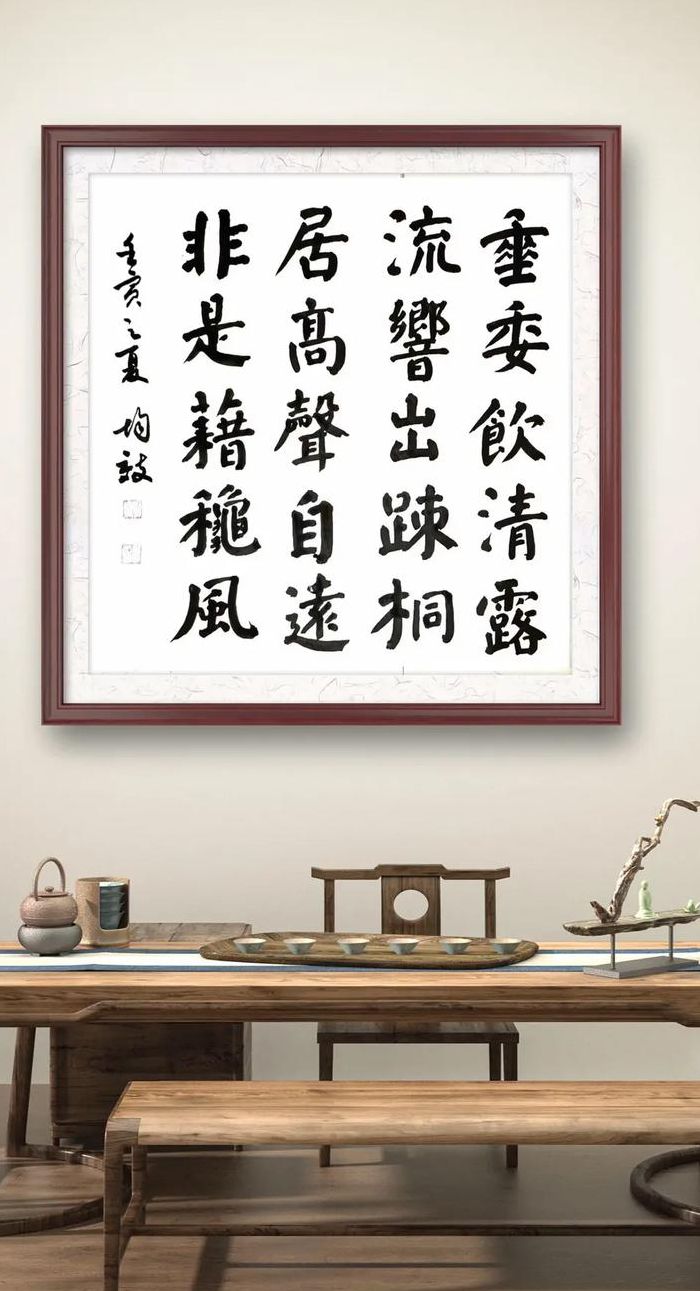 垂委飲清露
流響出踈桐
居髙聲自遠
非是藉穐風
壬寅之夏 均